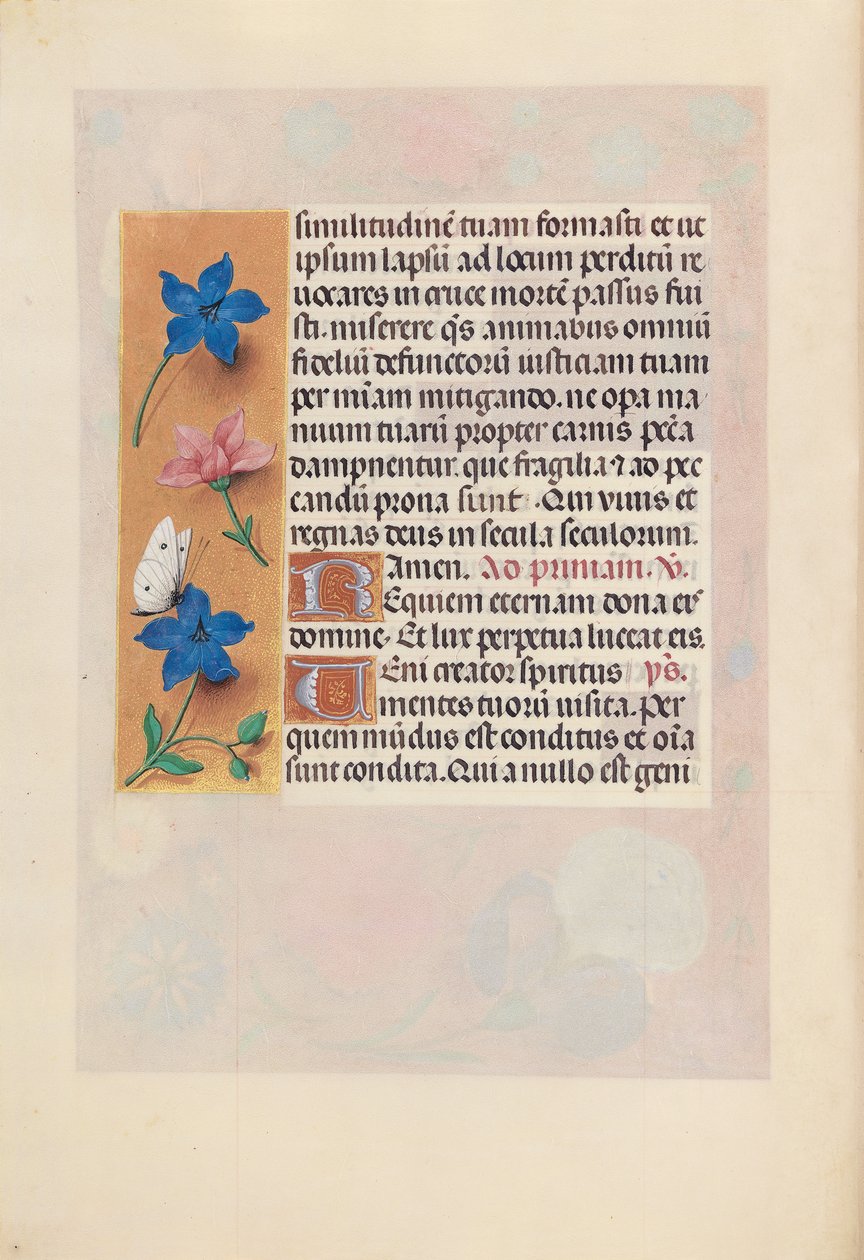 similitudinē tuam formasti et ut
ipsum lapsū ad locum perditū re
uocares in cruce mortē passus fui
sti. miserere q̄s animabus omniū
fideliū defunctorū iusticiam tuam
per mīam mitigando. ne opa ma
nuum tuarū propter carnis pecc̄a
dampnentur. que fragilia ⁊ ad pec
candū prona sunt. Qui viuis et
regnas deus in secula seculorum.
Amen. Ad primam. V̄.
REquiem eternam dona eis
domine. Et lux perpetua luceat eis.
UEni creator spiritus ps̄.
mentes tuorū uisita. Per
quem mūdus est conditus et oīa
sunt condita. Qui a nullo est geni